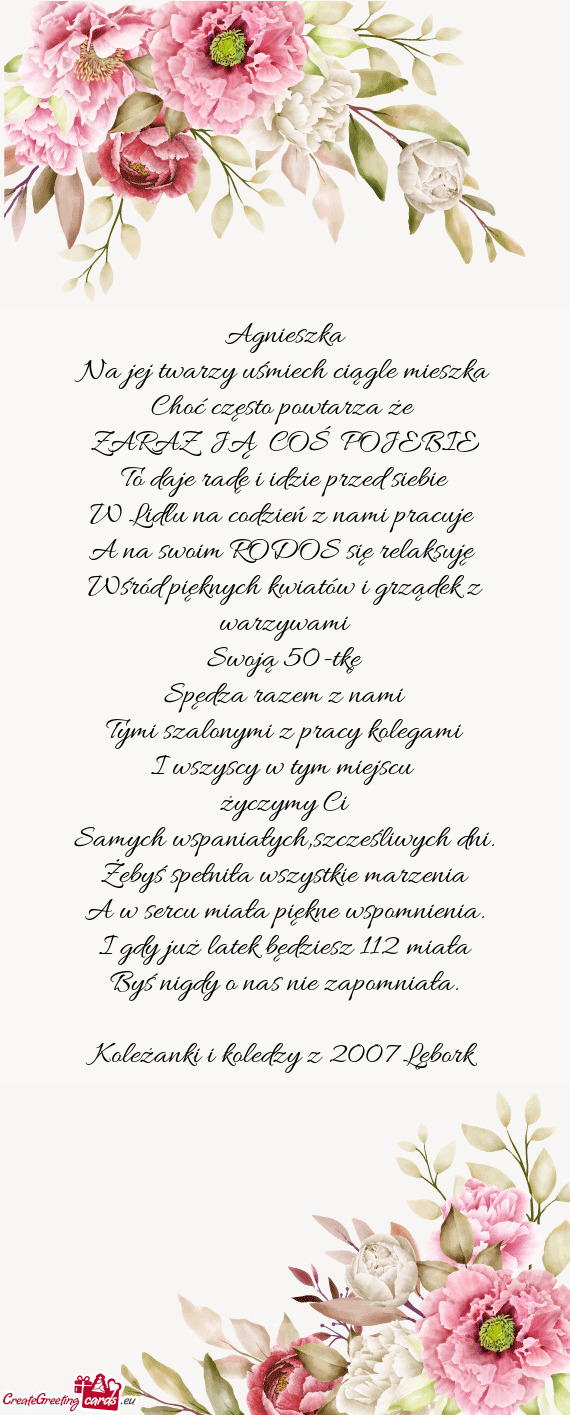 Agnieszka
Na jej twarzy uśmiech ciągle mieszka
Choć często powtarza że
ZARAZ JĄ COŚ POJEBIE
To daje radę i idzie przed siebie
W Lidlu na codzień z nami pracuje
A na swoim RODOS się relaksuję
Wśród pięknych kwiatów i grządek z
warzywami
Swoją 50-tkę
Spędza razem z nami
Tymi szalonymi z pracy kolegami
I wszyscy w tym miejscu
życzymy Ci
Samych wspaniałych,szcześliwych dni.
Żebyś spełniła wszystkie marzenia
A w sercu miała piękne wspomnienia.
I gdy już latek będziesz 112 miała
Byś nigdy o nas nie zapomniała.
Koleżanki i koledzy z 2007 Lębork
CreateGreeting cards .eu